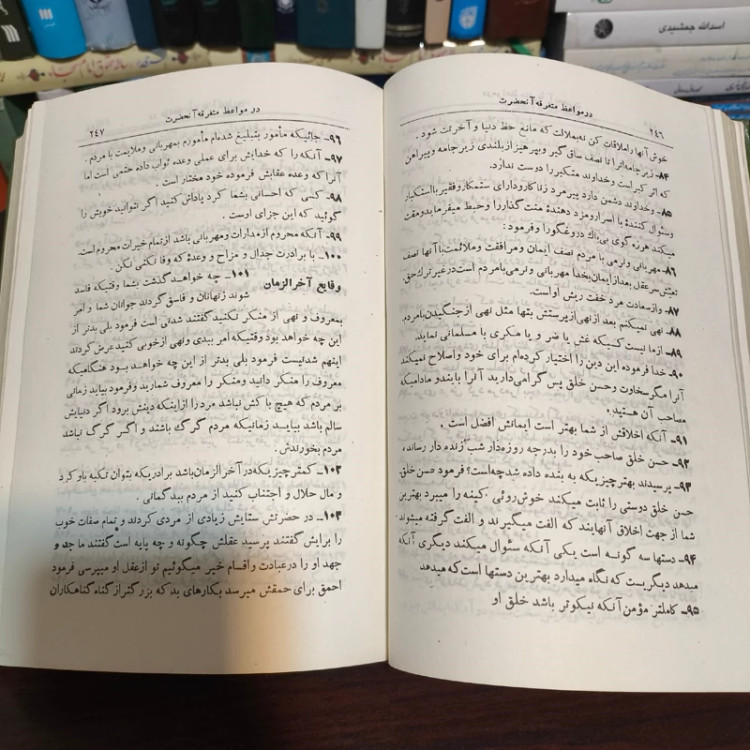 اسدالله جمشیدی
۲۴۶
در مواعظ متفرقه آنحضرت
خوش آنها را ملاقات کن نه بملالت که مانع حظ دنیا و آخرتت شود.
۸۴- زیر جامه‌ات را تا نصف ساق گیر و بپرهیز از بلندی زیر جامه و پیراهن
که اثر کبر است و خداوند متکبر را دوست ندارد.
۸۵- و خداوند دشمن دارد پیر مرد زناکار و دارای ستمکار و فقیر با استکبار
و سئوال کنندهٔ با اسرار و مزد دهندهٔ منت گذار را و حبط میفرماید و مقت
میکند هرزه گوی بی‌باك دروغگو را و فرمود:
۸۶- مهربانی و نرمی با مردم نصف ایمان و مرافقت و ملائمت با آنها نصف
تعیش سر عقل بعد از ایمان بخدا مهربانی و نرمی بامردم است در غیر ترك حق.
۸۷- و از سعادت مرد خفت ریش او است.
۸۸- نهی نمیکنم بعد از نهی از پرستش بتها مثل نهی از جنگیدن بامردم.
۸۹- از ما نیست کسیکه غش یا ضر و یا مکری با مسلمانی نماید.
۹۰- خدا فرموده این دین را اختیار کرده‌ام برای خود و اصلاح نمیکند
آنرا مگر سخاوت و حسن خلق پس گرامی دارید آنرا بایندو مادامیکه
مصاحب آن هستید.
۹۱- آنکه اخلاقش از شما بهتر است ایمانش افضل است.
۹۲- حسن خلق صاحب خود را بدرجه روزه‌دار شب زنده دار رساند.
۹۳- پرسیدند بهتر چیزیکه به بنده داده شد چه‌است؟ فرمود حسن خلق
حسن خلق دوستی را ثابت میکند خوش‌روئی کینه را میبرد بهترین
شما از جهت اخلاق آنهایند که الفت میگیرند و الفت گرفته میشوند
۹۴- دستها سه گونه است یکی آنکه سئوال میکند دیگری آنکه
میدهد دیگریست که نگاه میدارد بهترین دستها است که میدهد
۹۵- کاملتر مؤمن آنکه نیکوتر باشد خلق او
در مواعظ متفرقه آنحضرت
۲۴۷
۹۶- چنانیکه مأمور بتبلیغ شده‌ام مأمورم بمهربانی و ملایمت با مردم.
۹۷- آنکه را که خدایش برای عملی وعده ثواب داده حتمی است اما
آنرا که وعده عقابش فرموده خود مختار است.
۹۸- کسی که احسانی بشما کرد پاداش کنید اگر نتوانید خویش را
گوئید که این جزای اوست.
۹۹- آنکه محروم از مدارات و مهربانی باشد از تمام خیرات محروم است.
۱۰۰- با برادرت جدال و مزاح و وعدهٔ که وفا نکنی نکن.
وقایع آخر الزمان ۱۰۱- چه خواهد گذشت بشما وقتیکه فاسد
شوند زنهاتان و فاسق گردند جوانان شما و امر
بمعروف و نهی از منکر نکنید گفتند شدنی است فرمود بلی بدتر از
این چه خواهد بود وقتیکه امر ببدی و نهی از خوبی کنید عرض کردند
اینهم شدنیست فرمود بلی بدتر از این چه خواهد بود هنگامیکه
معروف را منکر دانید و منکر را معروف شمارید و فرمود بیاید زمانی
بر مردم که هیچ باکش نباشد مرد را از اینکه دینش برود اگر دنیایش
سالم باشد بیاید زمانیکه مردم گرگ باشند و اگر گرگ نباشد
مردم بخورندش.
۱۰۲- کمتر چیزیکه در آخر الزمان باشد برادریکه بتوان تکیه باو کرد
و مال حلال و اجتناب کنید از مردم ببدگمانی.
۱۰۳- در حضرتش ستایش زیادی از مردی کردند و تمام صفات خوب
را برایش گفتند پرسید عقلش چگونه و چه پایه است گفتند ما جد و
جهد او را در عبادت و اقسام خیر میگوئیم تو از عقل او میپرسی فرمود
احمق برای حمقش میرسد بکارهای بد که بزرگتر از گناه گناهکاران